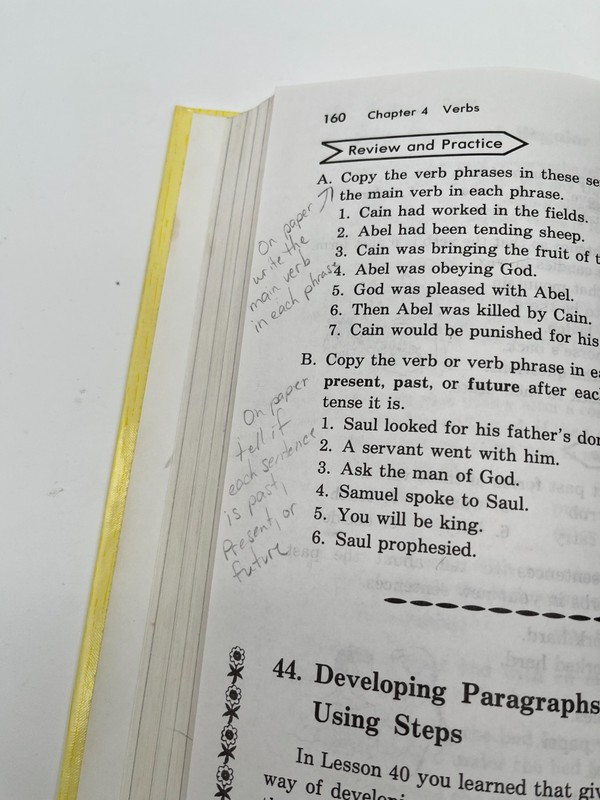 160 Chapter 4 Verbs
Review and Practice
A. Copy the verb phrases in these se
the main verb in each phrase.
1. Cain had worked in the fields.
2. Abel had been tending sheep.
3. Cain was bringing the fruit of t
4. Abel was obeying God.
5. God was pleased with Abel.
6. Then Abel was killed by Cain.
7. Cain would be punished for his
On paper
write the
main verb
in each phrase
B. Copy the verb or verb phrase in e
present, past, or future after eac
tense it is.
1. Saul looked for his father's don
2. A servant went with him.
3. Ask the man of God.
4. Samuel spoke to Saul.
5. You will be king.
6. Saul prophesied.
On paper
tell if
each sentence
is past,
Present, or
future
44. Developing Paragraphs
Using Steps
In Lesson 40 you learned that giv
way of develop